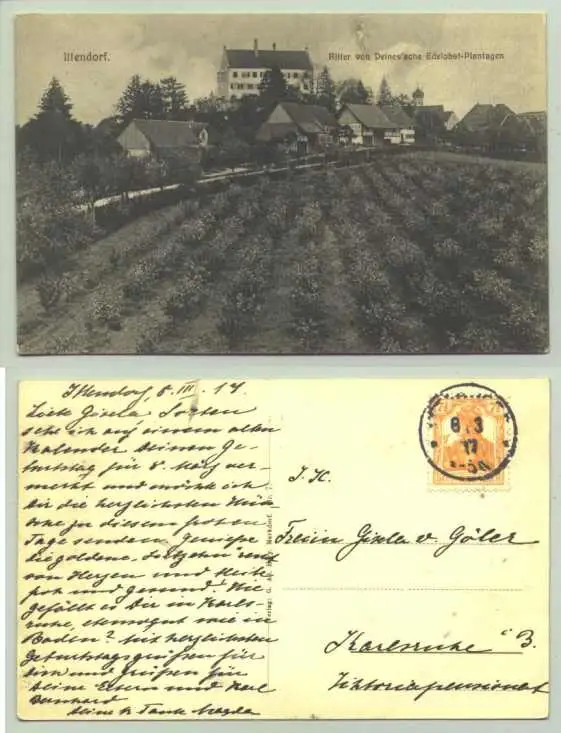 Ittendorf.
Ritter von Deines'sche Edelobst-Plantagen
Ittendorf, 8. III. 17.
Liebe Gisela! Soeben
sehe ich auf einem alten
Kalender Deinen Ge-
burtstag für 8. März ver-
merkt und möchte ich
Dir die herzlichsten Wün-
sche zu diesem frohen
Tage senden. Geniesse
die goldene
von Herzen und bleibe
froh und gesund. Wie
gefällt es Dir in Karls-
ruhe, ebensogut wie in
Baden? Mit herzlichsten
Geburtstagsgrüßen für
Dich und Grüßen für
Deine Eltern und Karl
Bernhard
Deine Tante Magda
Verlag: Markdorf.
8.3
17
I. H.
Freiin Gisela v. Göler
Karlsruhe i. B.
Viktoriapensionat